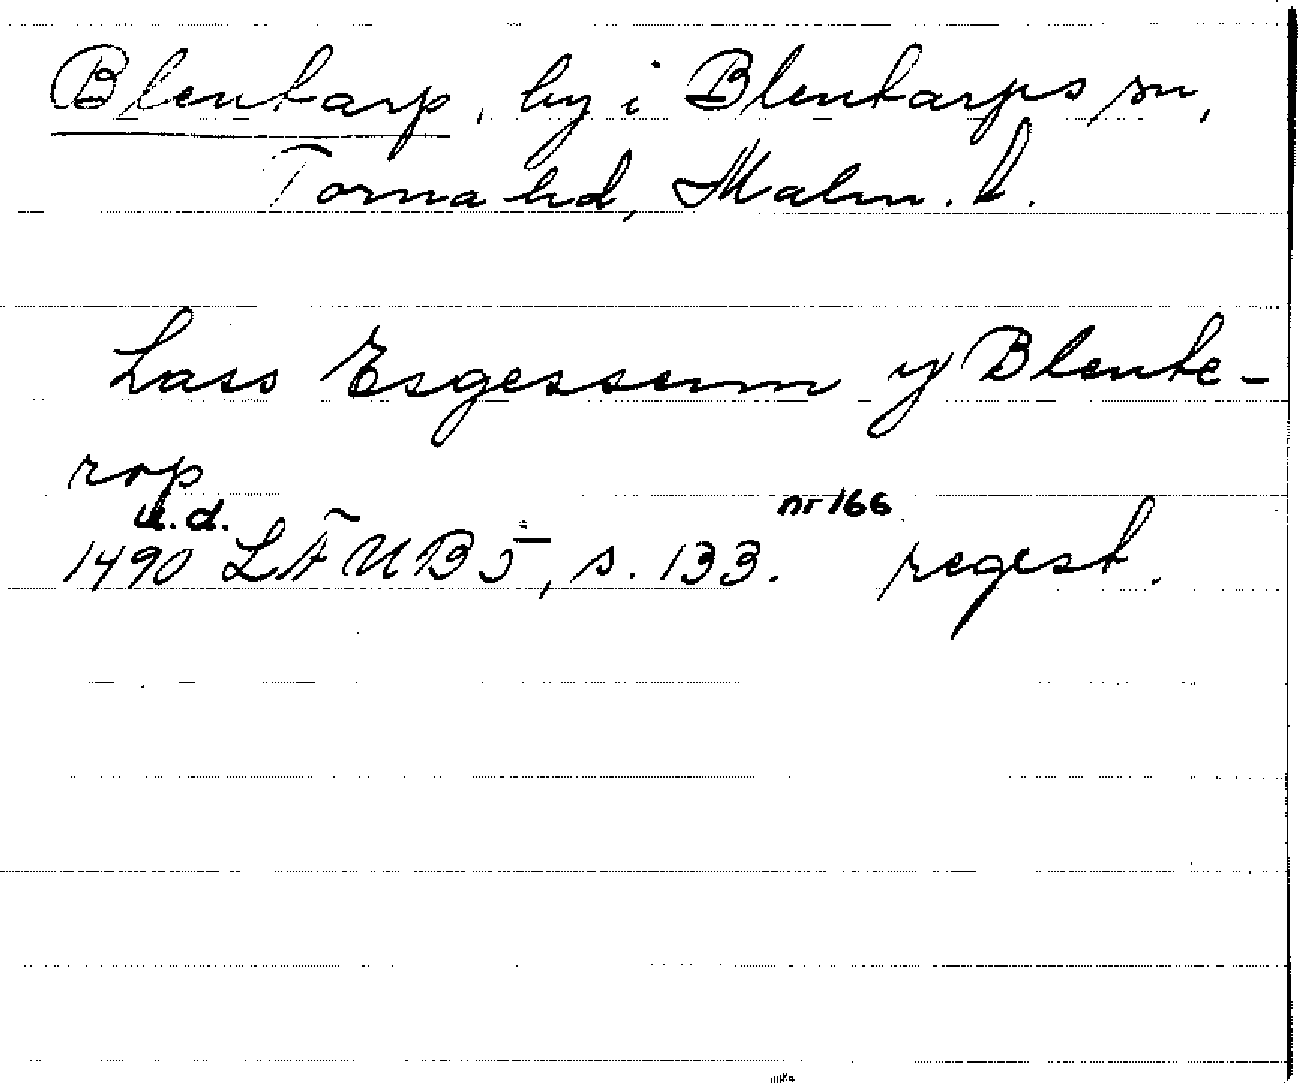 Blentarp, by i Blentarps sn,
Torna hd, Malm. l.
Lass Esgessenn y Blente-
rop
u.d. nr 166
1490 LÄUB 5, s. 133. regest.